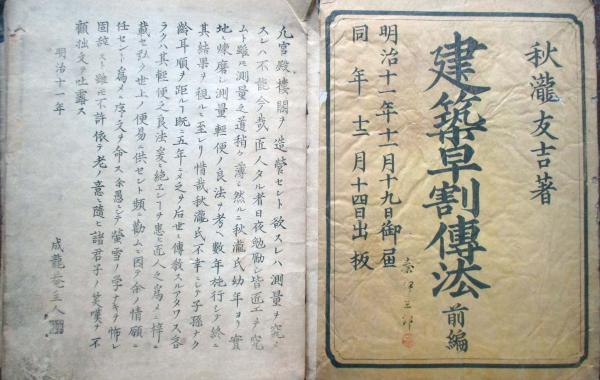 秋瀧友吉著
建築早割傳法 前編
明治十一年十一月十九日御届
同年十二月十四日出板
凡官殿樓閣ヲ造營セント欲スレハ測量ヲ究
スレハ不能今哉匠人タル者日夜勉勵シ皆匠工ヲ究
ムト雖モ測量之道稍ク薄シ然ルニ秋瀧氏幼年ヨリ實
地ニ煉磨シ測量輕便ノ良法ヲ考ヘ數年施行シテ終ニ
其結果ヲ視ルニ至レリ惜哉秋瀧氏不幸ニシテ子孫ナク
齡耳順ヲ距ル既ニ五年ニメ之ヲ后世ニ傳教スルアタワス吝
ラクハ其輕便之良法爰ニ絶エンヿヲ患ヒ匠人之爲メニ梓ニ
載セ弘ク世上ノ便易ニ供セント頻ニ勸ム因テ余ノ情願ニ
任セント爲メニ序文ヲ命ス余愚ニシテ螢雪ノ学ナキヲ怖レ
固辞スト雖モ不許依テ老ノ意ニ隨ヒ諸君子ノ笑嘆ヲ不
顧拙文ヲ吐露ス
明治十一年
成龍菴主人